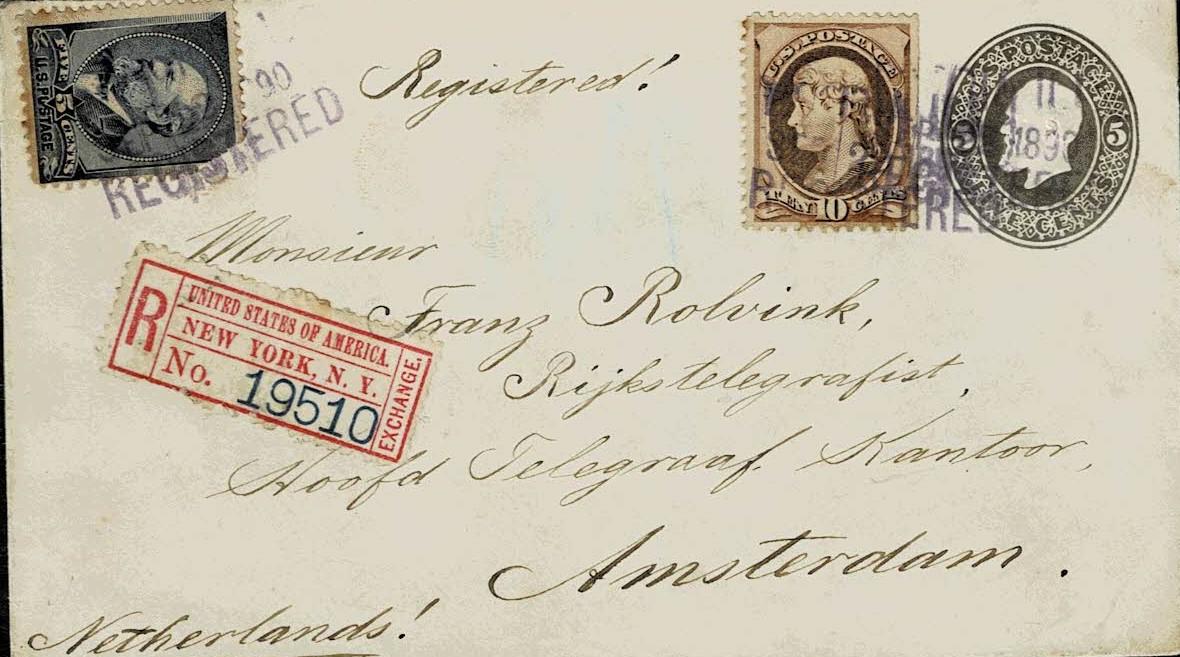 FIVE 5 CENTS
U.S. POSTAGE
90
REGISTERED
Registered!
U.S. POSTAGE
TEN 10 CENTS
U.S. POSTAGE
5 5
FIVE CENTS
1890
Monsieur
Franz Rolvink,
Rijkstelegrafist,
Hoofd Telegraaf Kantoor,
Amsterdam.
Netherlands!
R
UNITED STATES OF AMERICA.
NEW YORK, N. Y.
No. 19510
EXCHANGE.